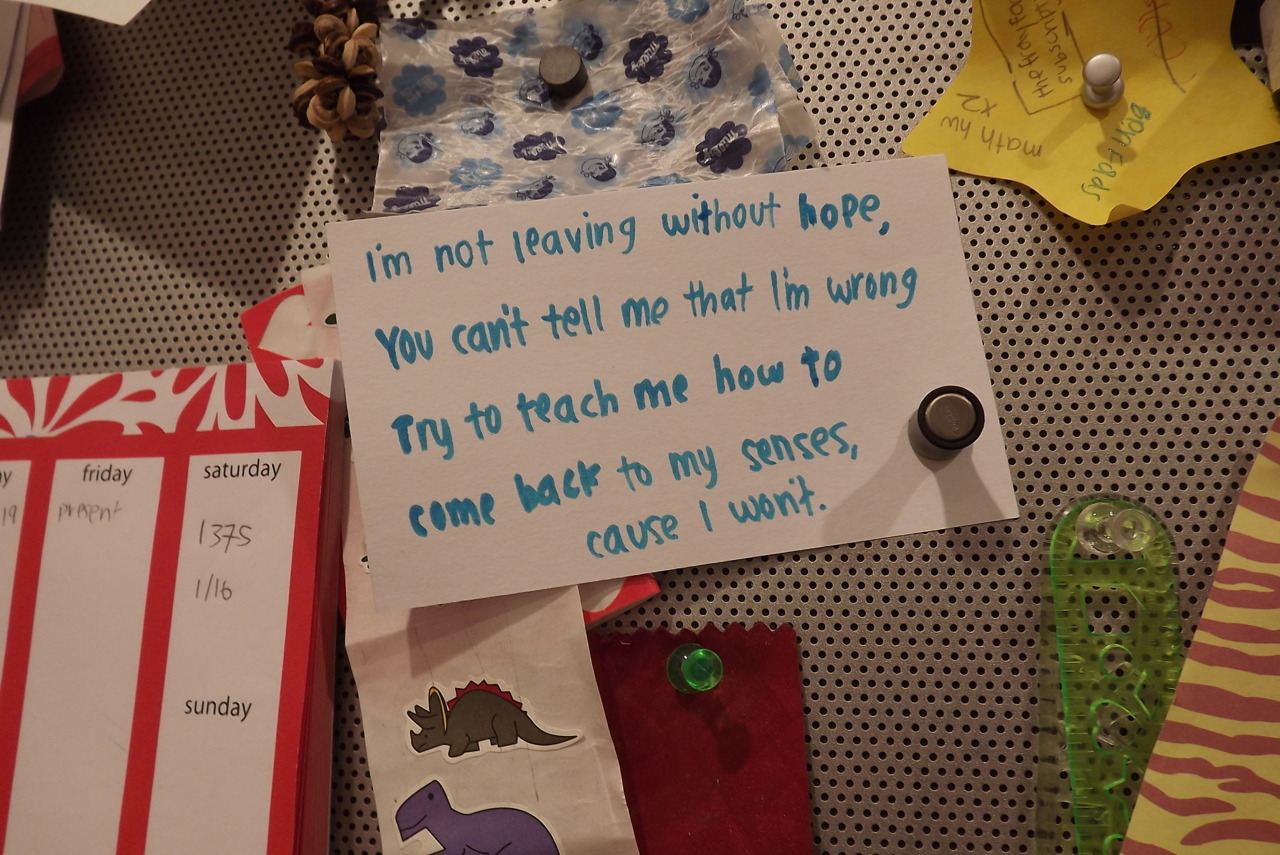 I'm not leaving without hope,
You can't tell me that I'm wrong
Try to teach me how to
come back to my senses,
cause I won't.
friday
saturday
present
1375
1/16
sunday
19
math hw
x2